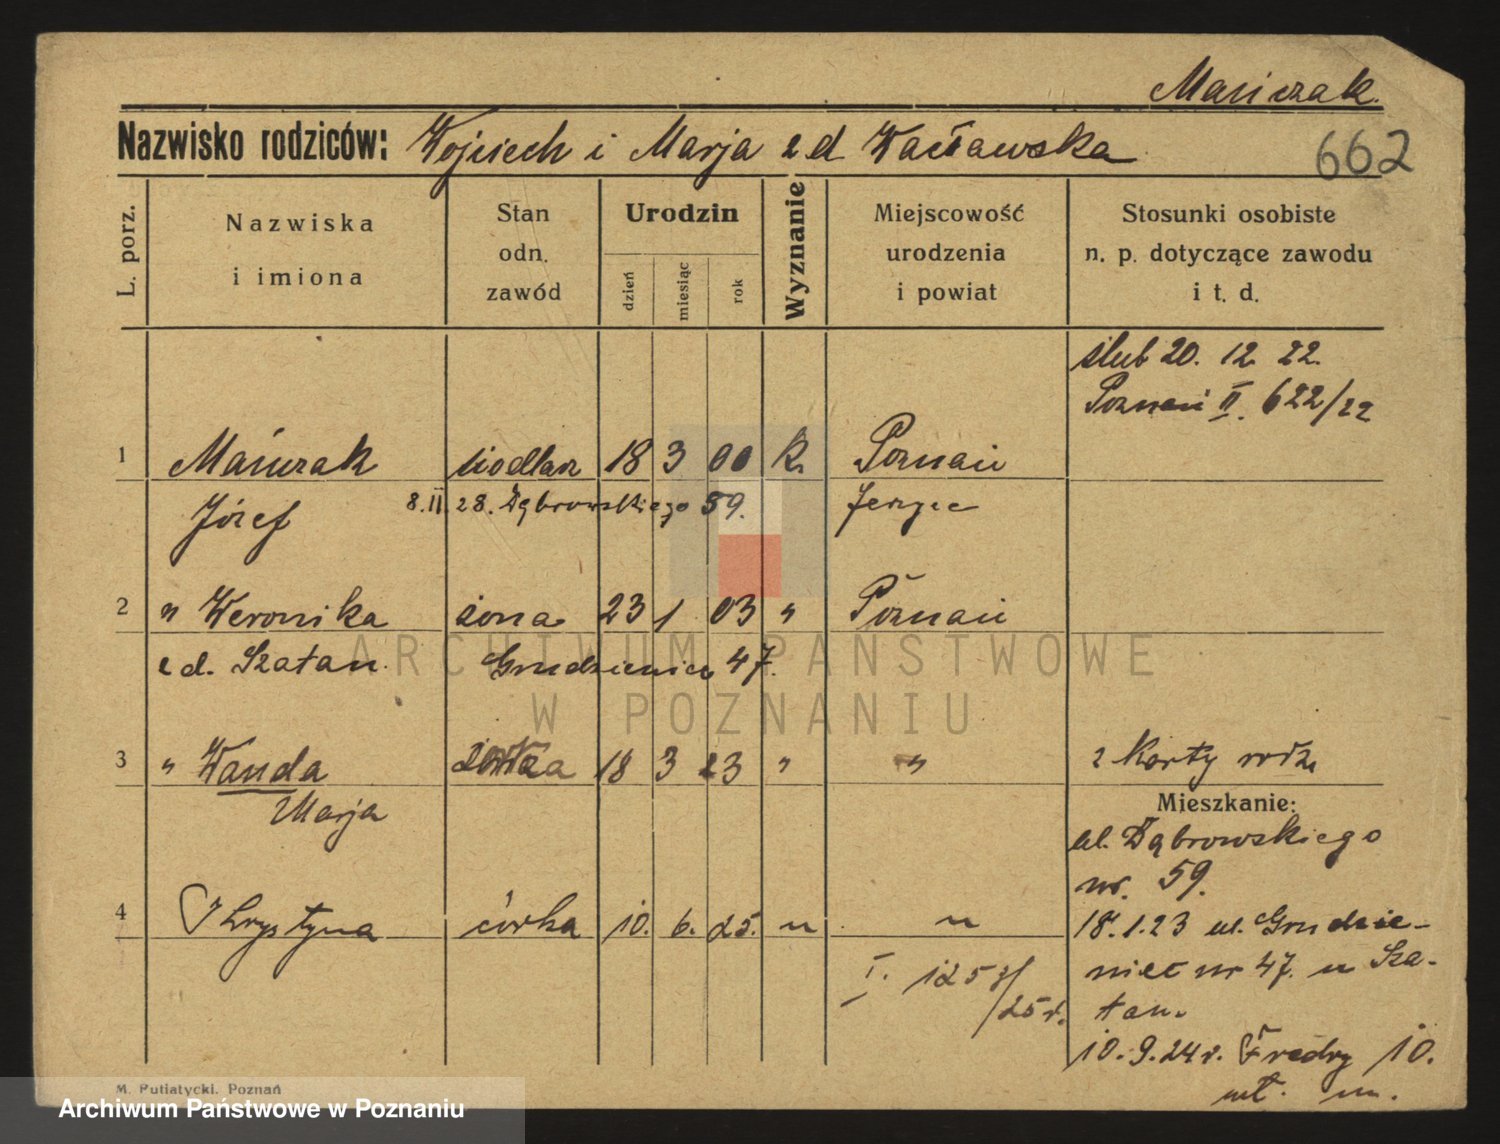 Mańczak.
Nazwisko rodziców: Wojciech i Marja z d Wacławska
662
L. porz.
Nazwiska i imiona
Stan odn. zawód
Urodzin
dzień
miesiąc
rok
Wyznanie
Miejscowość urodzenia i powiat
Stosunki osobiste n. p. dotyczące zawodu i t. d.
ślub 20. 12 22.
Poznań II. 622/22
1 Mańczak siodlarz 18 3 00 k. Poznań
Józef 8.II.28. Dąbrowskiego 59. Jerzyce
2 " Weronika żona 23 1 03 " Poznań
z d. Szatan. Grudzieniec 47.
3 " Wanda córka 18 3 23 " " z Karty rodz
Marja
Mieszkanie:
ul. Dąbrowskiego
nr. 59.
4 Krystyna córka 10. 6. 25. " "
18.1.23 ul. Grudzie-
niec nr 47. u Sza-
tan.
I. 1258/25 r.
10.9.24 r. Fredry 10.
M. Putiatycki. Poznań
Archiwum Państwowe w Poznaniu
ARCHIWUM PAŃSTWOWE
W POZNANIU